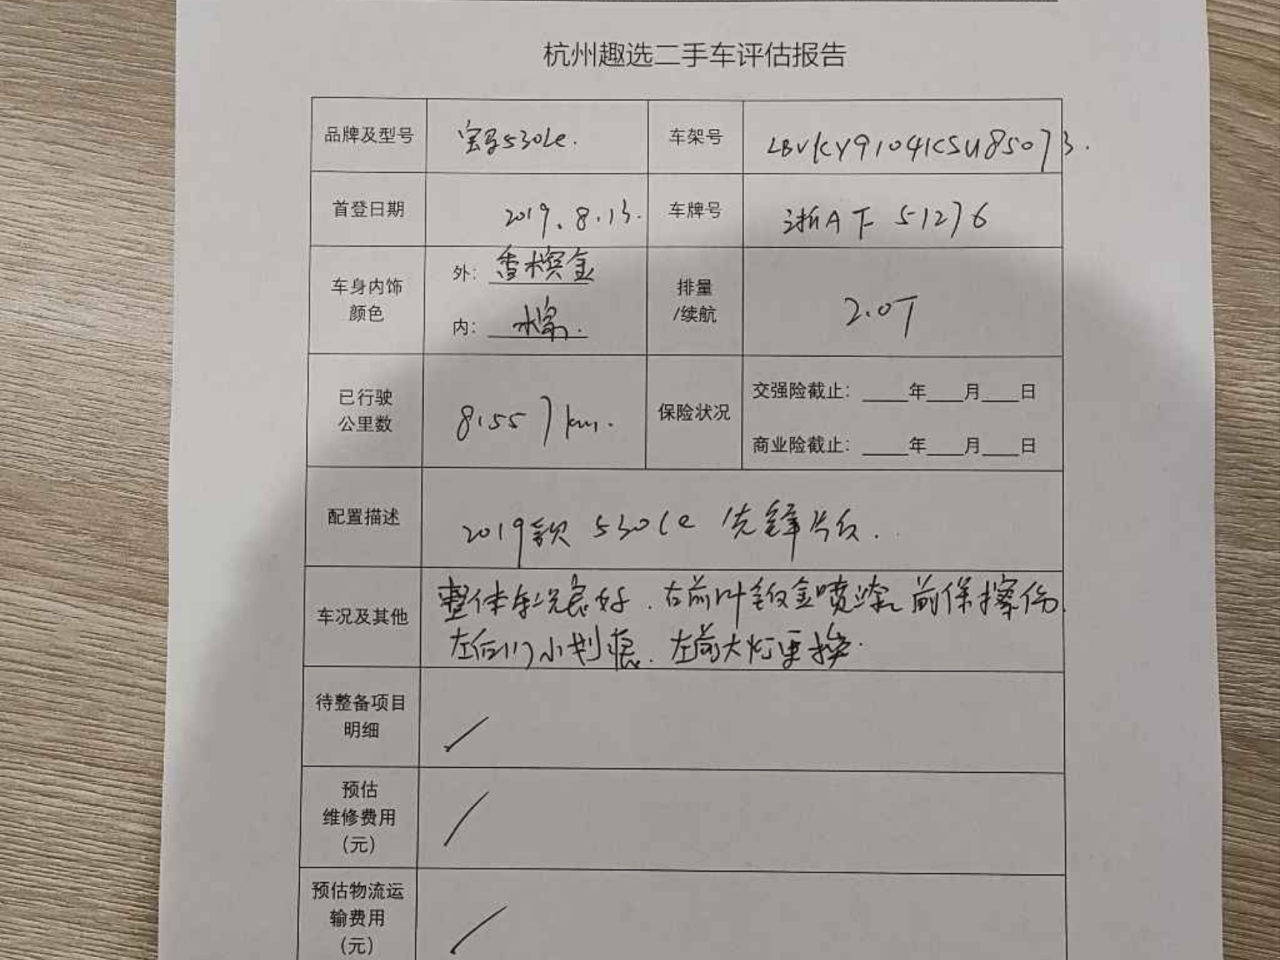 杭州趣选二手车评估报告
品牌及型号 宝马530Le. 车架号 LBVKY9104KSU85073.
首登日期 2019.8.13. 车牌号 浙AF51276
车身内饰 外: 香槟金 排量
颜色 内: 棕. /续航 2.0T
已行驶 交强险截止: ____年____月____日
公里数 8.557km. 保险状况
商业险截止: ____年____月____日
配置描述 2019款 530Le 先锋版.
车况及其他 整体车况良好.右前叶钣金喷漆 前保擦伤.
左后门小划痕.左前大灯更换.
待整备项目
明细 /
预估
维修费用 /
(元)
预估物流运
输费用 /
(元)